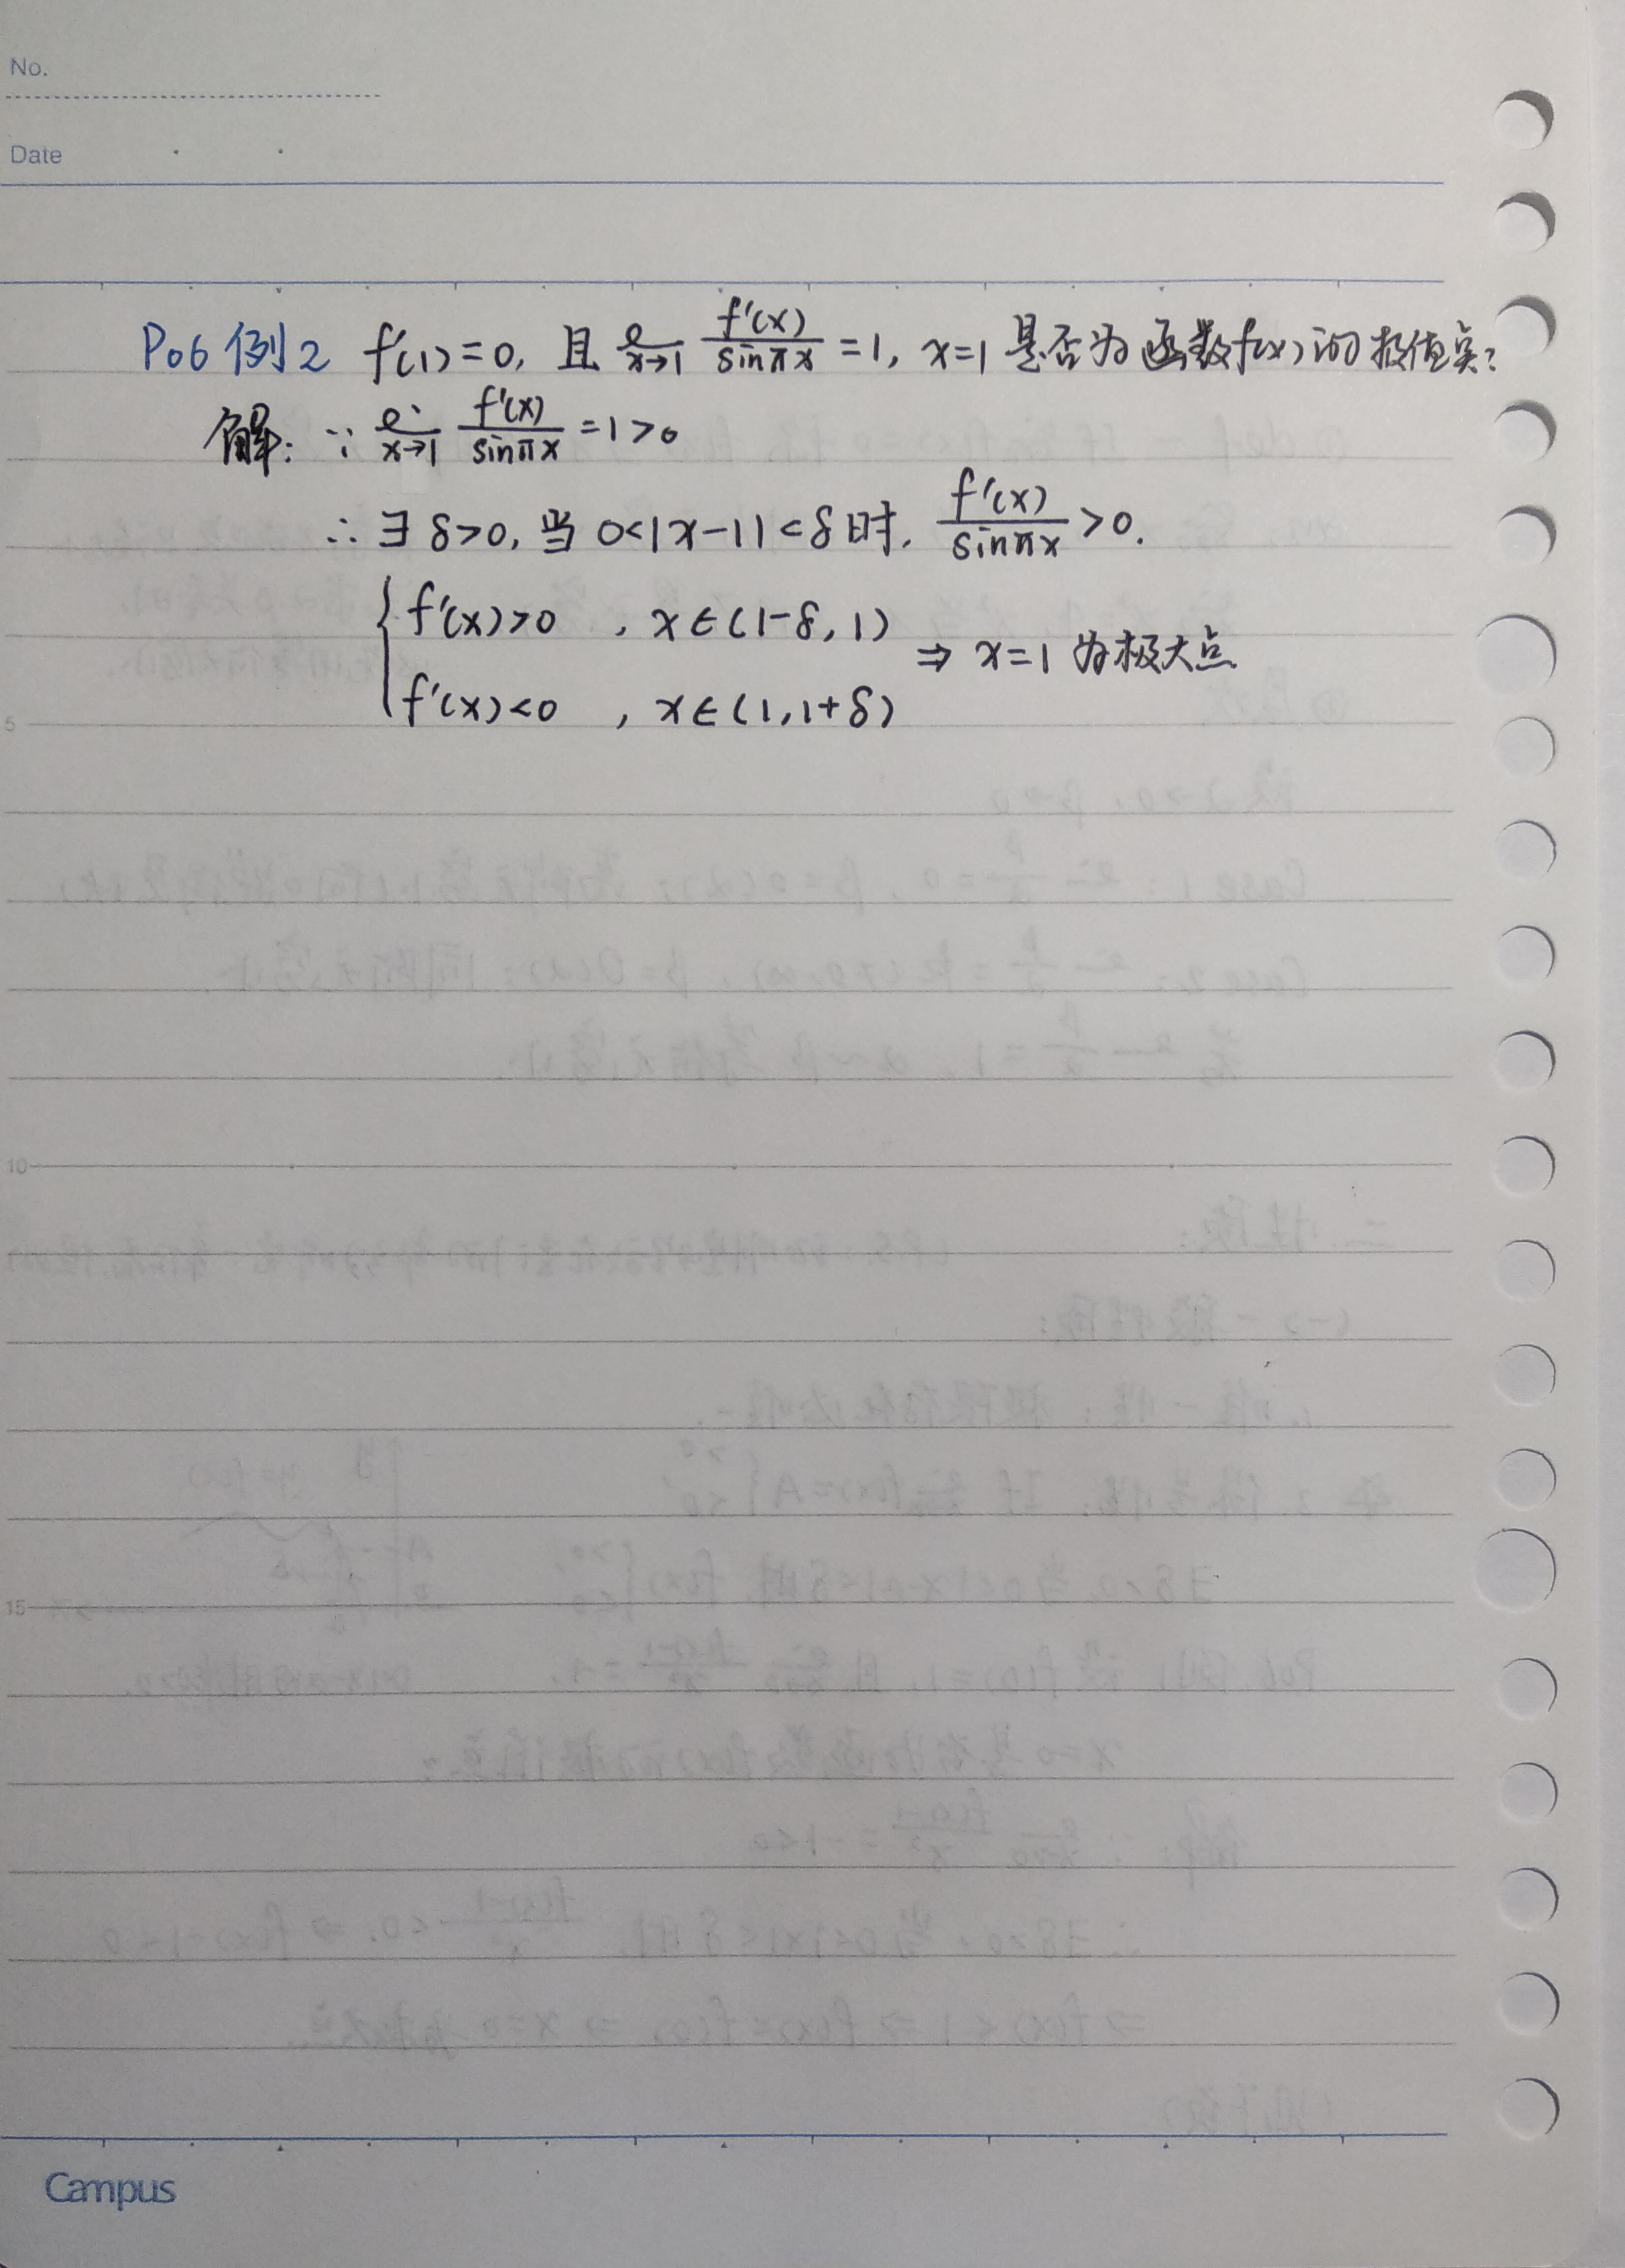 No.
Date
P06 例2 f'(1)=0, 且 lim x→1 f'(x)/sinπx =1, x=1 是否为函数f(x)的极值点?
解: ∵ lim x→1 f'(x)/sinπx =1>0
∴ ∃ δ>0, 当 0<|x-1|<δ时, f'(x)/sinπx >0.
{ f'(x)>0 , x∈(1-δ, 1)
⇒ x=1 为极大点
f'(x)<0 , x∈(1, 1+δ)
5
10
15
Campus